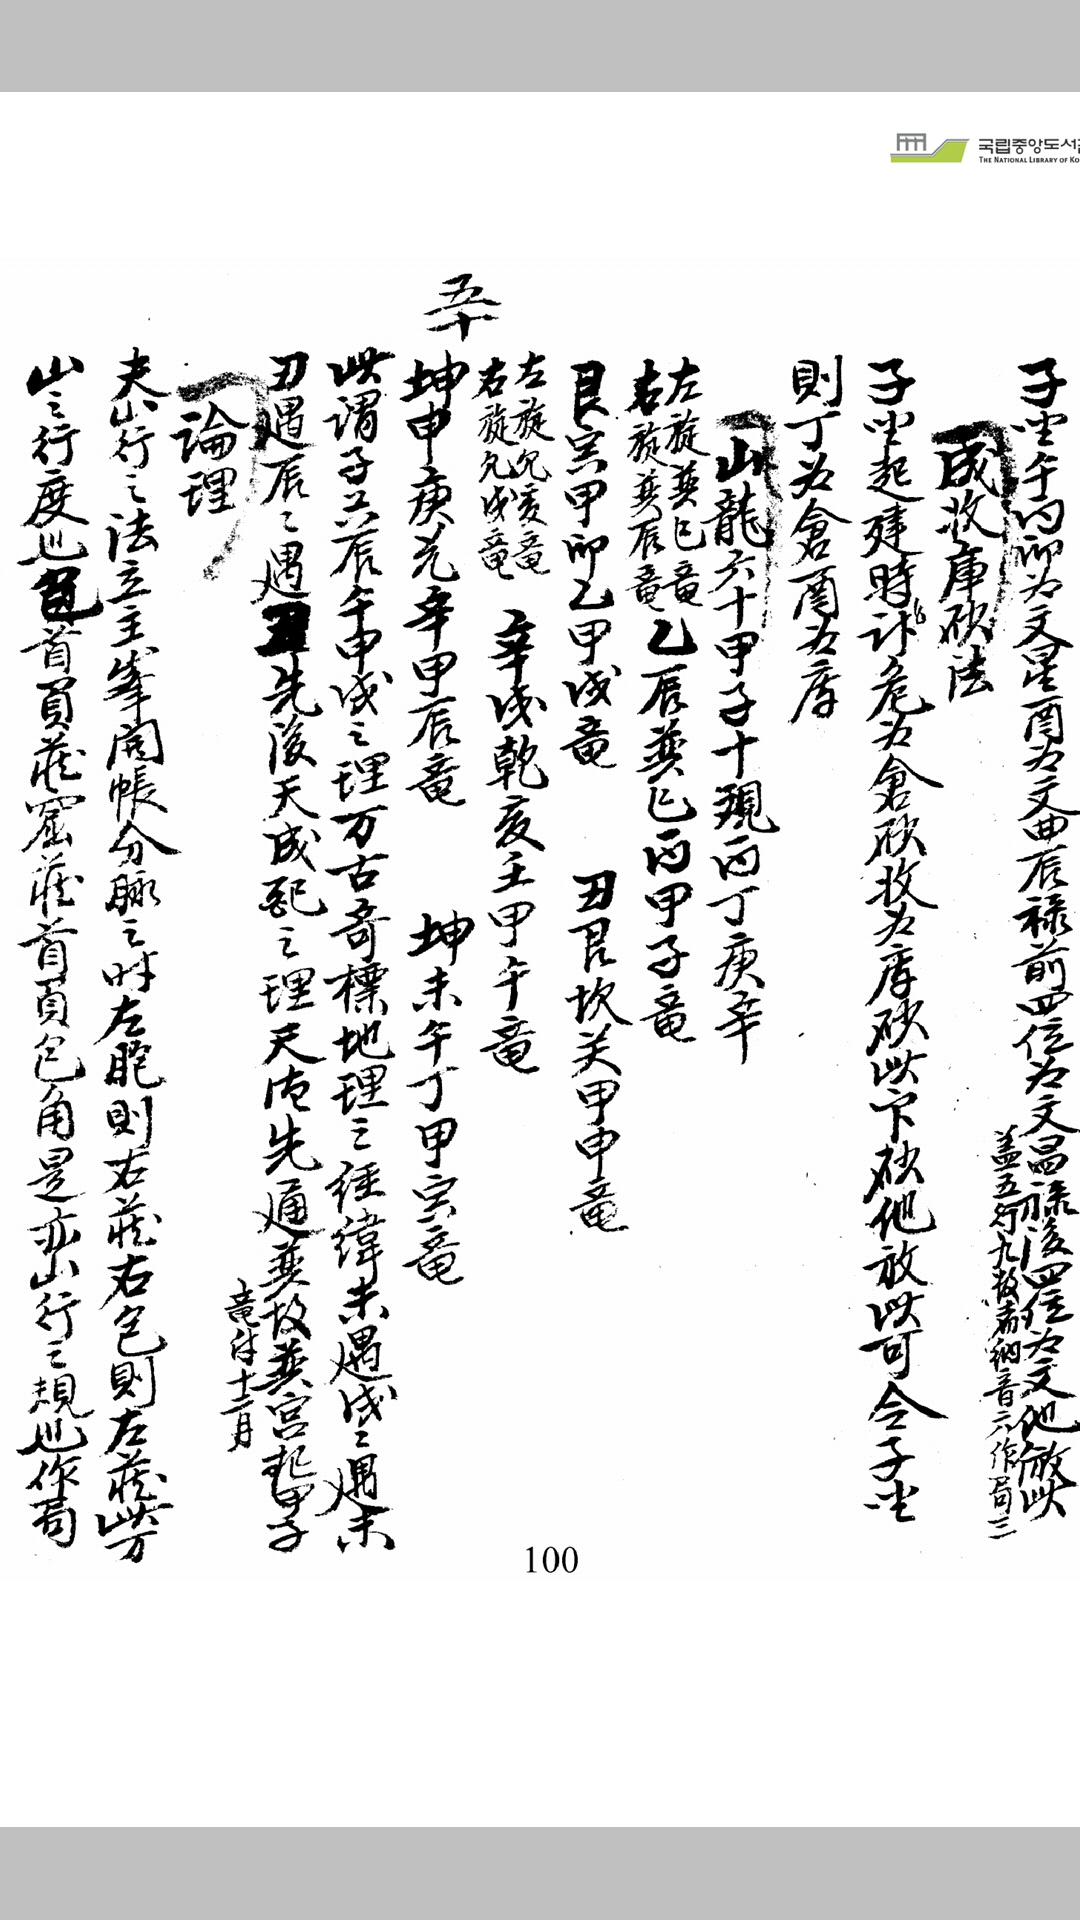 국립중앙도서관
THE NATIONAL LIBRARY OF KO
子坐午向卯为文星酉为文曲辰禄前四位为文昌禄後四位为文他倣此
盖五行九数者納音六作局三
成收庫砂法
子坐起建時計危为倉砂收为庫砂此下砂他放此可令子坐
則丁为倉酉为库
山龍六十甲子十現丙丁庚辛
左旋巽巳竜
右旋巽辰竜
乙辰巽巳丙甲子竜
艮寅甲卯乙甲戌竜
丑艮坎关甲申竜
左旋乾亥竜
右旋乾戌竜
辛戌乾亥壬甲午竜
五十
坤申庚兑辛甲辰竜
坤未午丁甲寅竜
此謂子寅辰午申戌之理万古奇標地理之経緯未遇戌戌遇未
丑遇辰辰遇丑先後天成配之理天德先通巽故巽宮起甲子
竜付十二月
論理
夫山行之法立主峯開帳分脉之时左胞則右蔵右包則左蔵此万
山之行度也首員蔵窟蔵首員包角是亦山行之規也作局
100